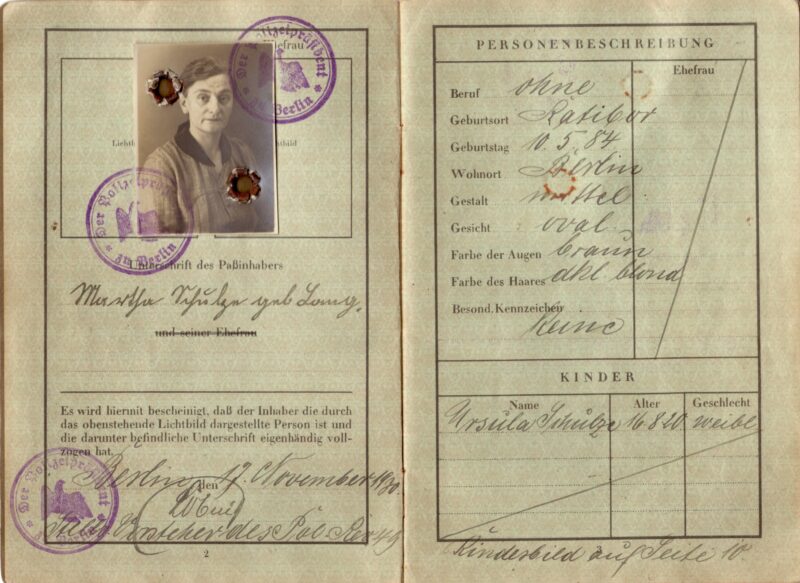 Der Polizeipräsident
zu Berlin
Ehefrau
Lichtb
htbild
Der Polizeipräsident
zu Berlin
Unterschrift des Paßinhabers
Martha Schulze geb Lang.
und seiner Ehefrau
Es wird hiermit bescheinigt, daß der Inhaber die durch
das obenstehende Lichtbild dargestellte Person ist und
die darunter befindliche Unterschrift eigenhändig voll-
zogen hat.
Berlin, den 17. November 1930.
Vorsteher des Pol. Rev.
Der Polizeipräsident
zu Berlin
2
PERSONENBESCHREIBUNG
Ehefrau
Beruf ohne
Geburtsort Ratibor
Geburtstag 10.5.84
Wohnort Berlin
Gestalt mittel
Gesicht oval
Farbe der Augen braun
Farbe des Haares dkl blond
Besond. Kennzeichen
Keine
KINDER
Name Alter Geschlecht
Ursula Schulze 16.8.20 weibl
Kinderbild auf Seite 10.